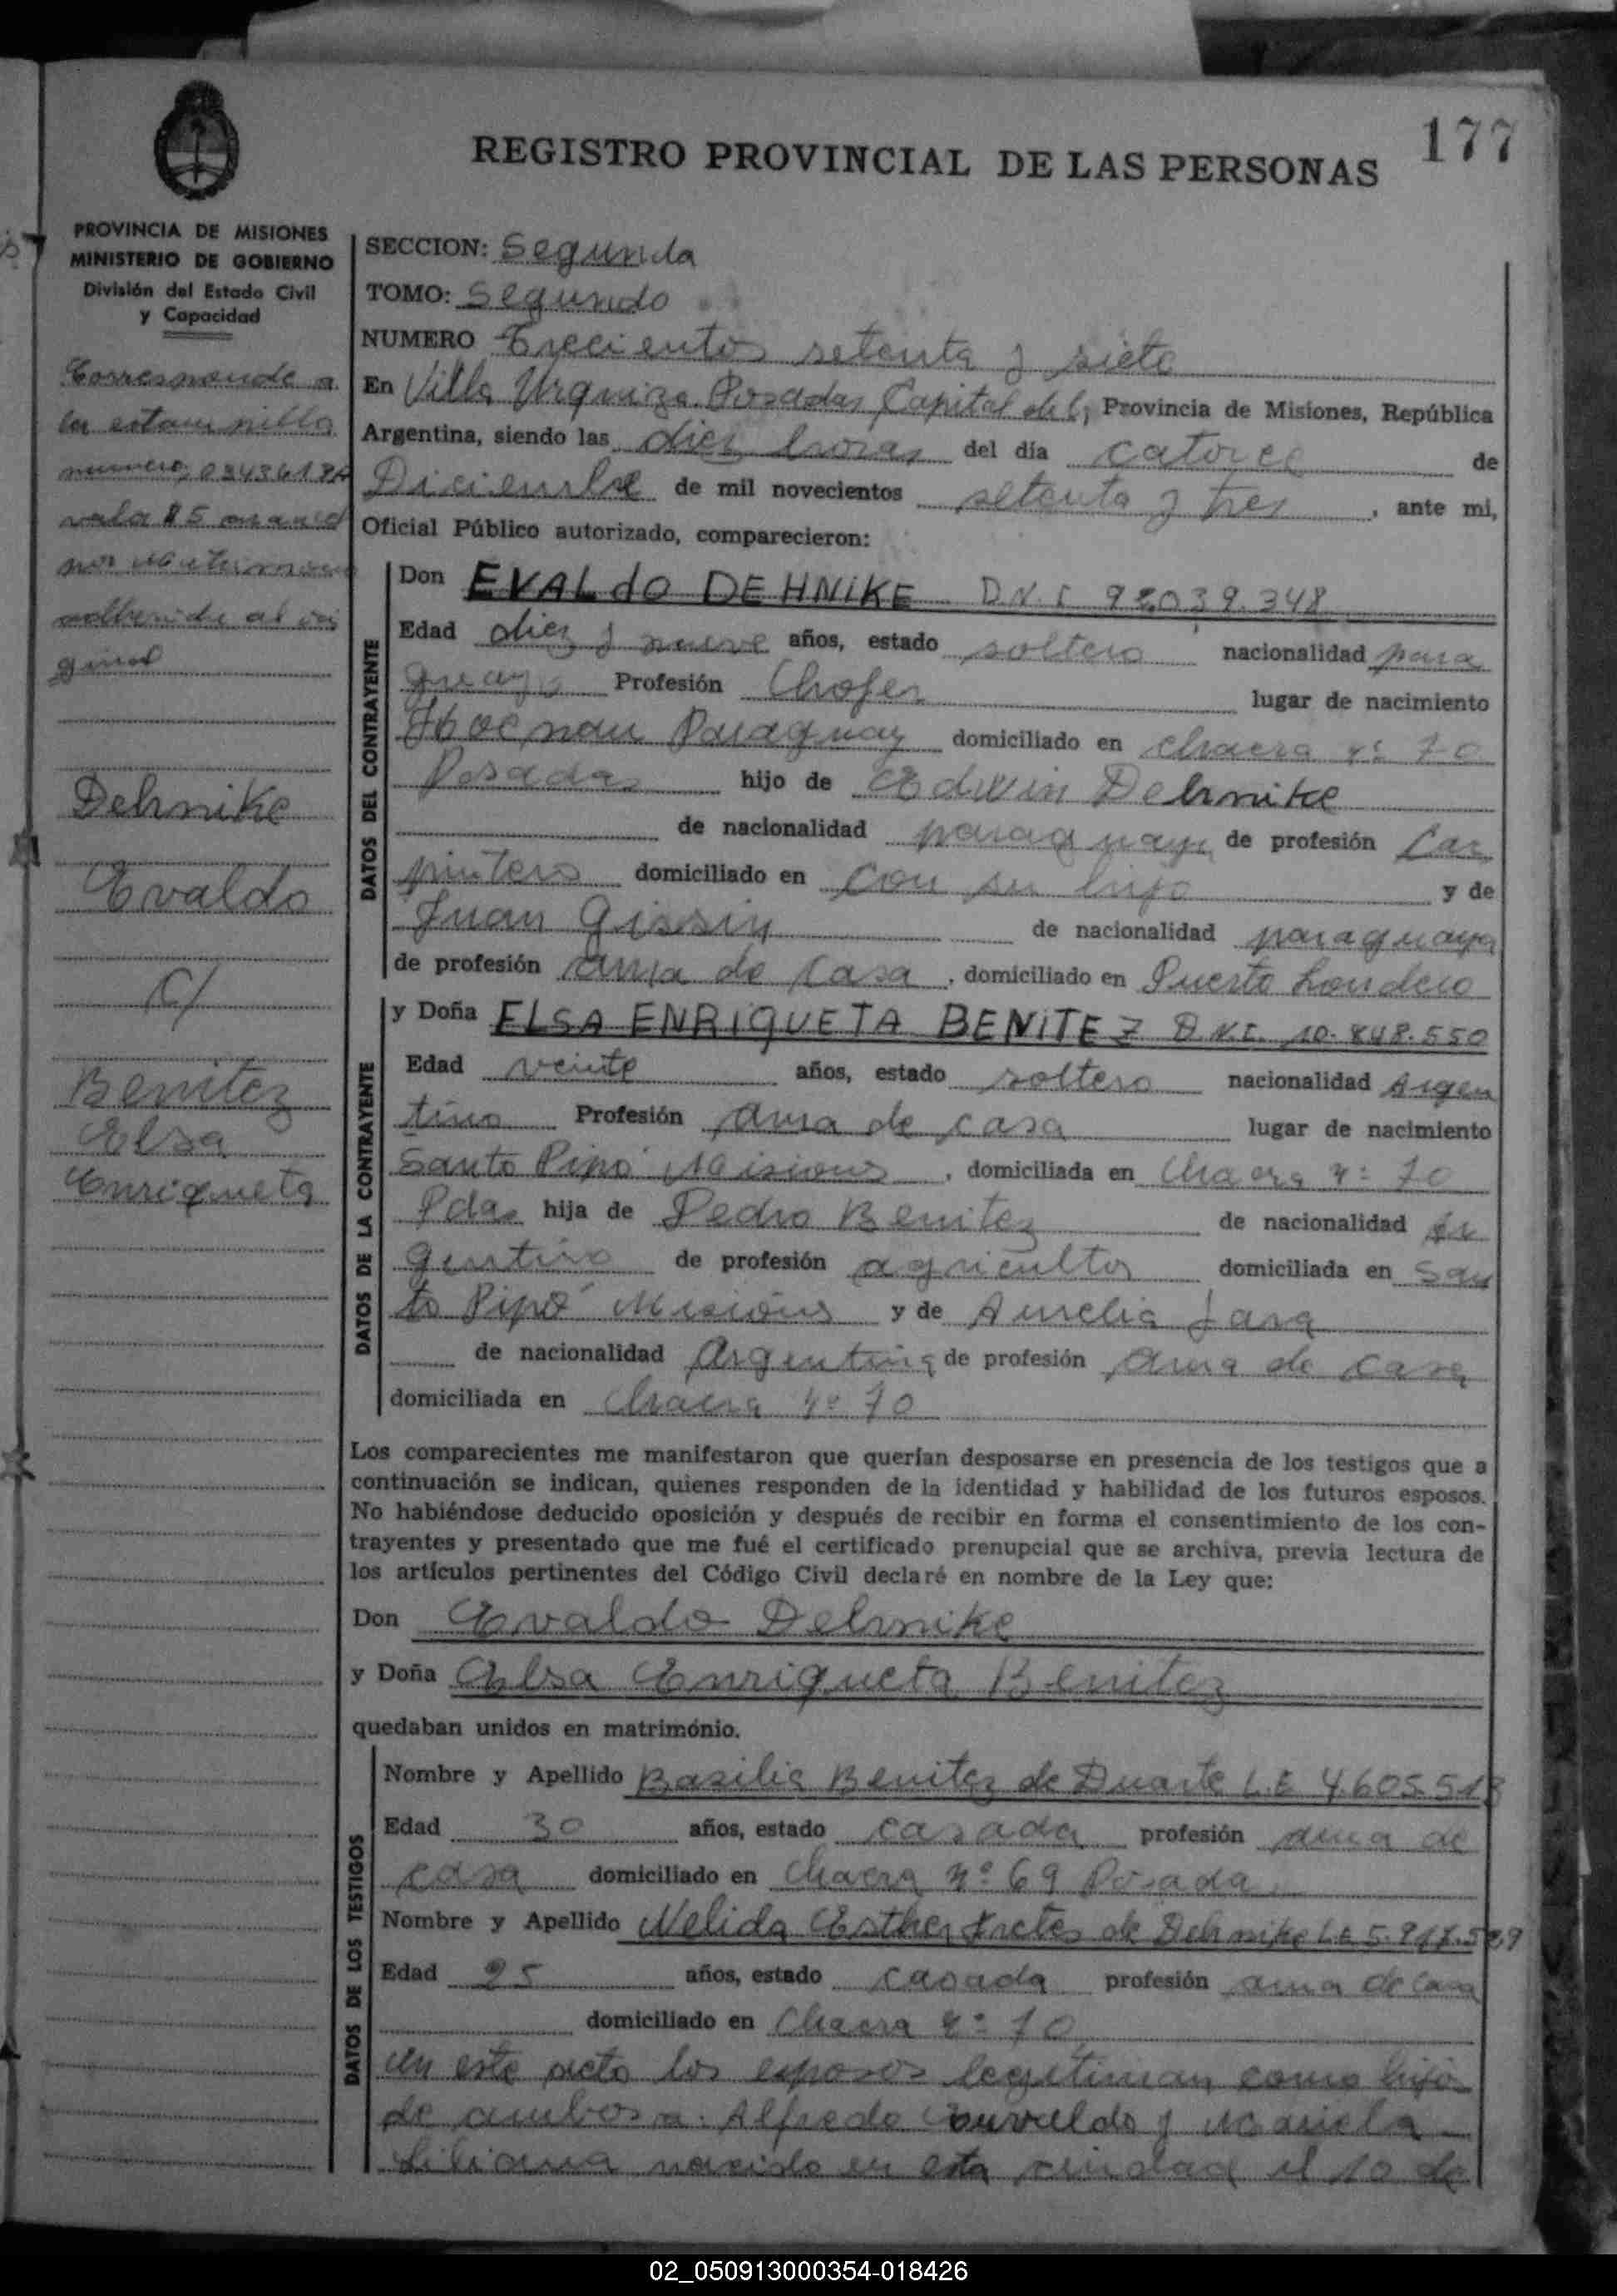 177
REGISTRO PROVINCIAL DE LAS PERSONAS
PROVINCIA DE MISIONES
MINISTERIO DE GOBIERNO
División del Estado Civil
y Capacidad
Corresponde a
la estampilla
numero
valor $5
adherida al ori
ginal
Dehnike
Evaldo
c/
Benitez
Elsa
Enriqueta
SECCION: Segunda
TOMO: Segundo
NUMERO Trecientos setenta y siete
En Villa Urquiza Posadas Capital de l; Provincia de Misiones, República
Argentina, siendo las diez horas del día catorce de
Diciembre de mil novecientos setenta y tres, ante mi,
Oficial Público autorizado, comparecieron:
DATOS DEL CONTRAYENTE
Don EVALdO DEHNIKE D.N.I 92.039.348
Edad diez y nueve años, estado soltero nacionalidad para
guayo Profesión Chofer lugar de nacimiento
Hoenau Paraguay domiciliado en chacra nº 70
Posadas hijo de Edwin Dehnike
de nacionalidad paraguaya de profesión Car
pintero domiciliado en con su hijo y de
Juan Gissin de nacionalidad paraguaya
de profesión ama de casa, domiciliado en Puerto
DATOS DE LA CONTRAYENTE
y Doña ELSA ENRiQUETA BENiTEZ D.N.I. 10.848.550
Edad veinte años, estado soltera nacionalidad Argen
tina Profesión ama de casa lugar de nacimiento
Santo Pipó Misiones, domiciliada en Chacra nº 70
Pdas hija de Pedro Benitez de nacionalidad Ar
gentino de profesión agricultor domiciliada en San
to Pipó Misiones y de Aurelia Jara
de nacionalidad Argentina de profesión ama de casa
domiciliada en Chacra nº 70
Los comparecientes me manifestaron que querían desposarse en presencia de los testigos que a
continuación se indican, quienes responden de la identidad y habilidad de los futuros esposos.
No habiéndose deducido oposición y después de recibir en forma el consentimiento de los con-
trayentes y presentado que me fué el certificado prenupcial que se archiva, previa lectura de
los artículos pertinentes del Código Civil declaré en nombre de la Ley que:
Don Evaldo Dehnike
y Doña Elsa Enriqueta Benitez
quedaban unidos en matrimonio.
DATOS DE LOS TESTIGOS
Nombre y Apellido Basilia Benitez de Duarte L.E 4.605.513
Edad 30 años, estado casada profesión ama de
casa domiciliado en Chacra nº 69 Posadas
Nombre y Apellido Nelida Esther Fretes de Dehnike L.E
Edad 25 años, estado casada profesión ama de casa
domiciliado en Chacra nº 70
En este acto los esposos legitiman como hijos
de ambos a: Alfredo y Mariela
Liliana nacido en esta ciudad el 10 de
02_050913000354-018426